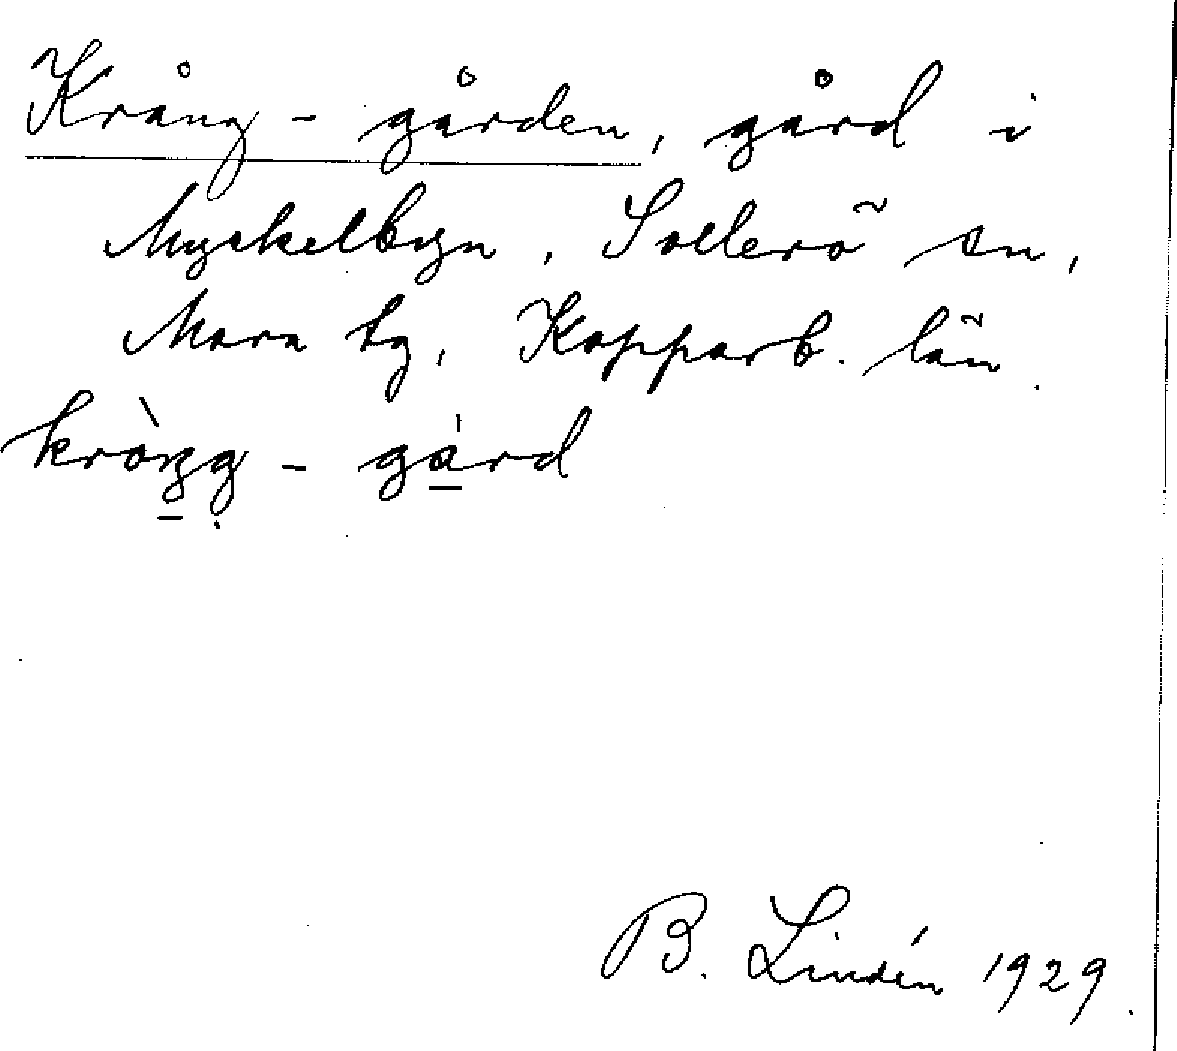 Krång-gården, gård i
Myckelbyn, Sollerö sn,
Mora tg, Kopparb. län.
kròŋg-gård
B. Lindén 1929.